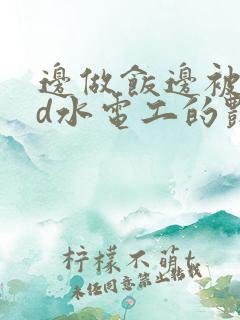 邊做飯邊被
d水電工的
柠檬不萌t
未经同意禁止转载